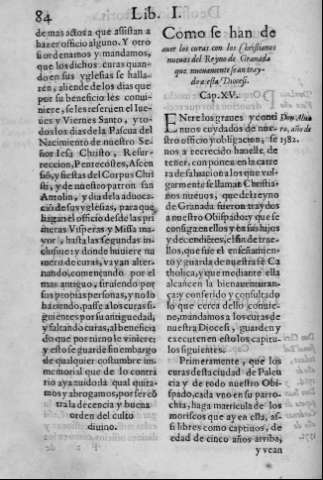 84 Lib. I.
de mas actoria que assistan a
hazer officio alguno. Y otro
si ordenamos y mandamos,
que los dichos curas quan-
do en sus yglesias se halla-
ren, aliende de los dias que
por su beneficio les convi-
niere, se les reseruen el Iue-
ues y Viernes Santo, y to-
dos los dias de la Pascua del
Nacimiento de nuestro Se-
ñor Iesu Christo, Resurre-
reccion, Pentecostes, Ascen
sió, y fiestas del Corpus Chri
sti, y de nuestro patron san
Antolin, y dia de la aduoca-
ció de sus yglesias, para que
hagan el officio desde las pri
meras Visperas y Missa ma
yor, hasta las segundas in-
clusiue: y donde huuiere nu
mero de curas, vayan alter-
nando, començando por el
mas antiguo, siruiendo por
sus proprias personas, y no lo
haziendo, passe a los curas si-
guientes por su antiguedad,
y faltando curas, al beneficia
do que por turno le viniere:
y esto se guarde sin embargo
de qualquier costumbre in-
memorial que de lo contra
rio aya auido, la qual quita-
mos y abrogamos, por ser có
tra la decencia y buena
orden del culto
diuino.
Como se han de
auer los curas con los Christianos
nueuos del Reyno de Granada
que nueuamente se an tray-
do a esta Diocesi.
Cap. XV.
ENtre los graues y conti
nuos cuydados de nue-
stro officio y obligacion, se
nos a recrecido hauelle, de
tener, con ponen en la carre
ra de saluacion a los que vul
garmente se llaman Christia-
nos nueuos, que del reyno
de Granada fueron traydos
a nuestro Obispado: y que se
consiga en ellos y en sus hijos
y decendientes, el fin de trae-
llos, que fue el enseñamien-
to y guarda de nuestra fe Ca
tholica, y que mediante ella
alcancen la bienauenturan-
ça: y conferido y consultado
lo que cerca dello conuie-
ne, mandamos a los curas de
nuestra Diocesi, guarden y
executen en esto los capitu-
los siguientes.
Primeramente, que los
curas desta ciudad de Palen
cia y de todo nuestro Obi-
spado, cada vno en su parro-
chia, haga matricula de los
moriscos que ay en ella, as-
si libres como captiuos, de
edad de cinco años arriba,
y vean
ro, año de
1582.